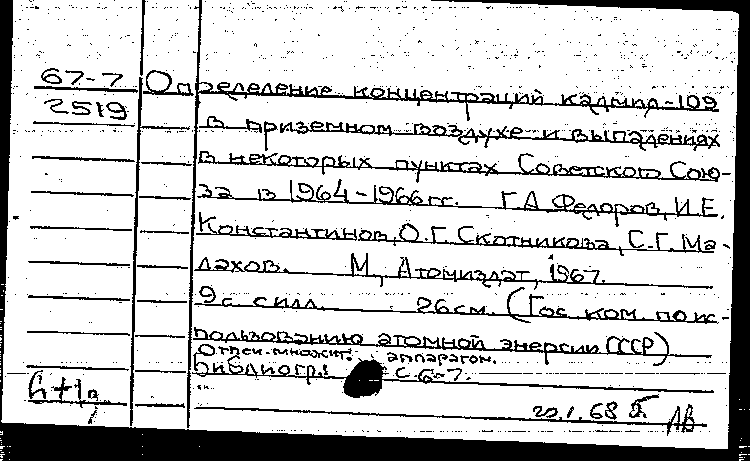 67-7
2519
Определение концентраций кадмия-109
в приземном воздухе и выпадениях
в некоторых пунктах Советского Сою-
за в 1964-1966 гг. Г.А. Федоров, И.Е.
Константинов, О.Г. Скотникова, С.Г. Ма-
лахов. М., Атомиздат, 1967.
9 с. с илл. 26 см. (Гос. ком. по ис-
пользованию атомной энергии СССР)
Отпеч. множит. аппаратом.
Библиогр.: с. 6-7.
20.1.68